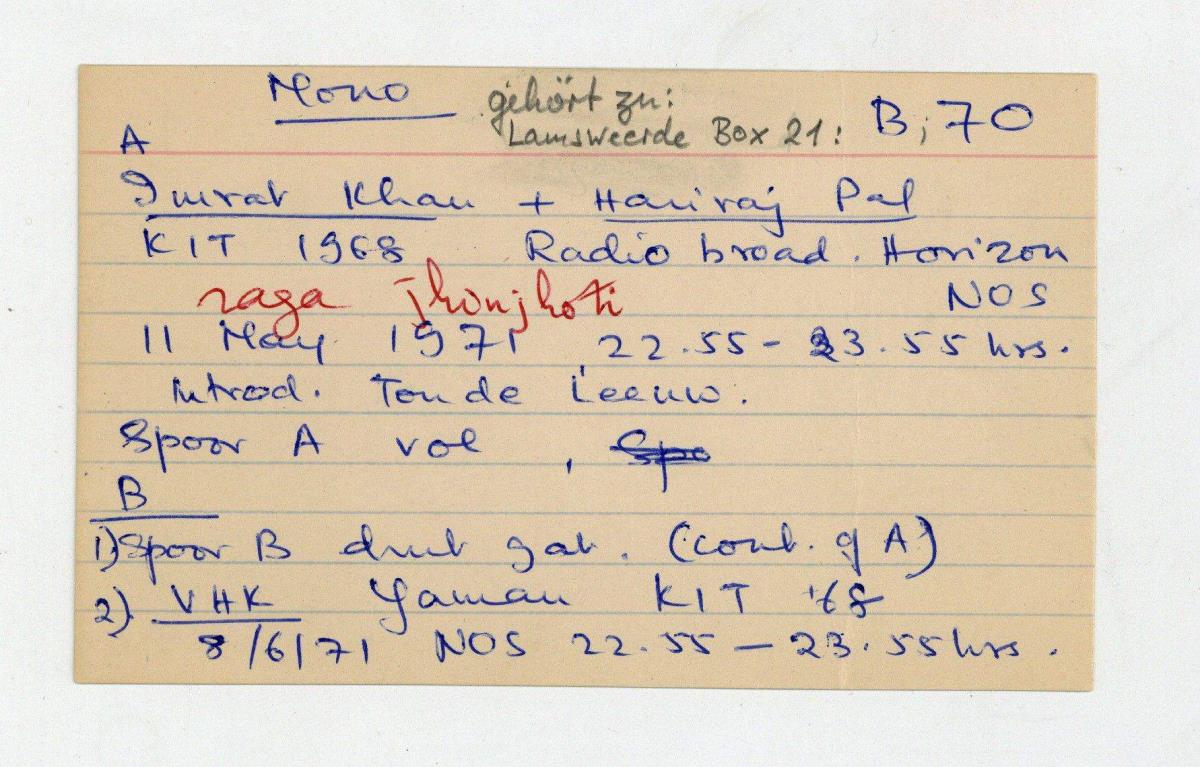 Mono gehört zu:
Lamsweerde Box 21: B; 70
A
Imrat Khan + Hariraj Pal
KIT 1968 Radio broad. Horizon
raga Jhinjhoti NOS
11 May 1971, 22.55 - 23.55 hrs.
Introd. Ton de Leeuw.
Spoor A vol , Spo
B
1) Spoor B drut gat. (cont. of A)
2) VHK Yaman KIT '68
8/6/71 NOS 22.55 - 23.55 hrs.